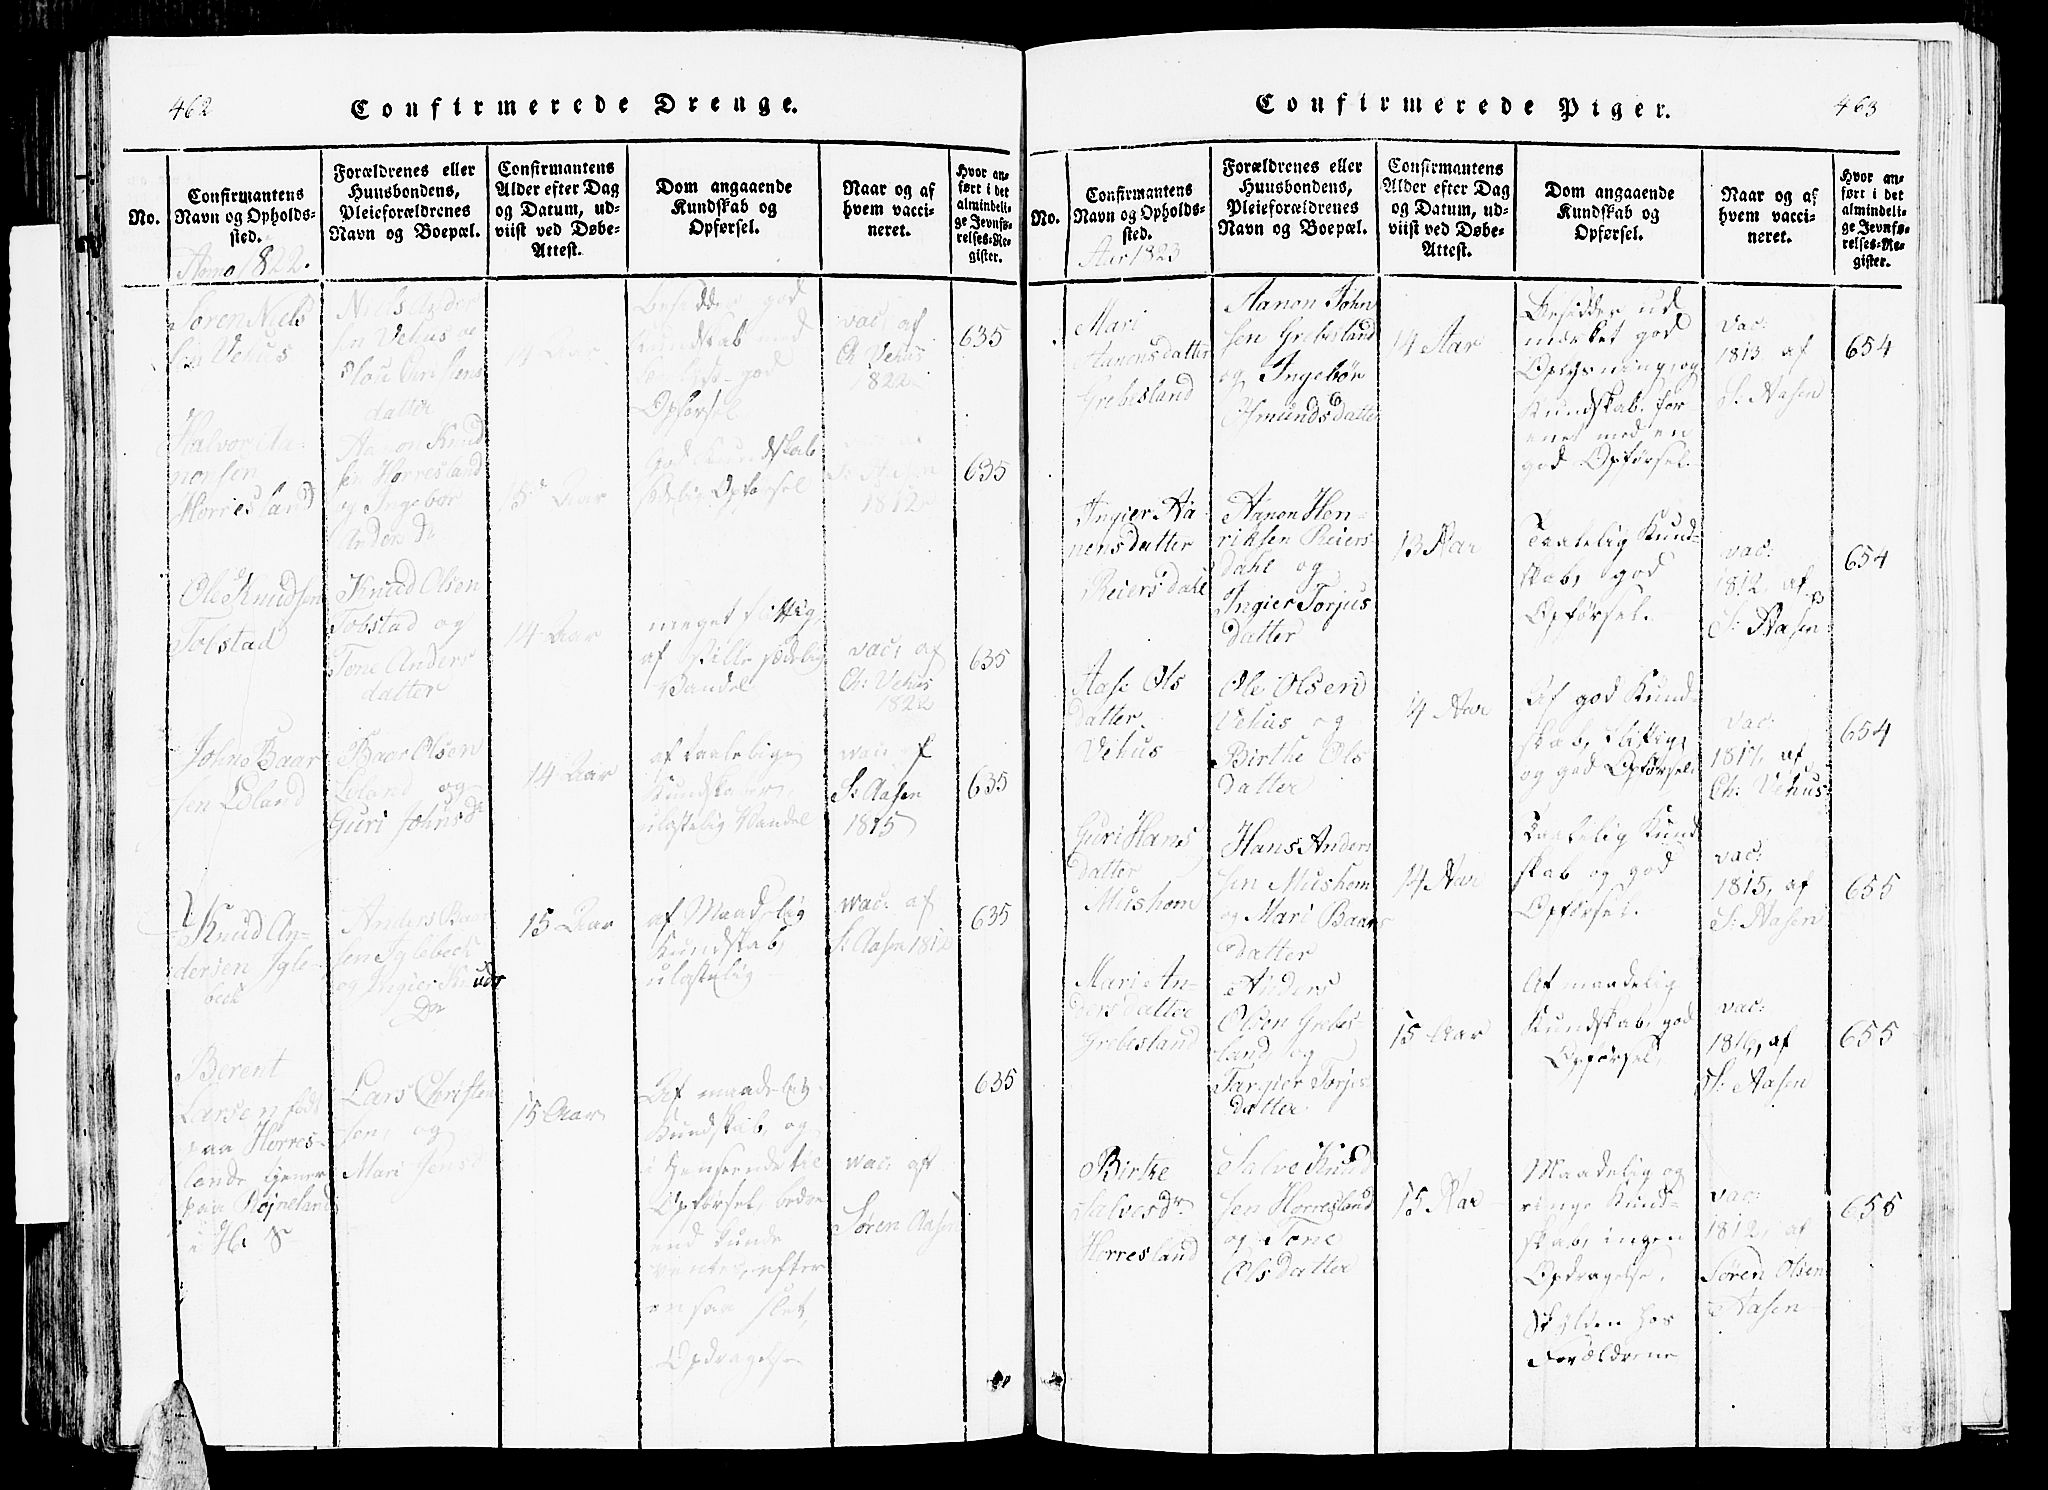 462
Confirmerede Drenge.
No.
Confirmantens
Navn og Opholds-
sted.
Anno 1822.
Forældrenes eller
Huusbondens,
Pleieforældrenes
Navn og Boepæl.
Confirmantens
Alder efter Dag
og Datum, ud-
viist ved Døbe-
Attest.
Dom angaaende
Kundskab og
Opførsel.
Naar og af
hvem vacci-
neret.
Hvor an-
ført i det
almindeli-
ge Jevnfø-
relses-Re-
gister.
Søren Niels
sen Vehus
Niels Ander
sen Vehus og
datter
Besidder god
Kundskab med
god
Opførsel
vac: af
Ch Vehus
1822
635
Halvor Aa-
nonsen
Horresland
Aanon Knud
sen Horresland
og Ingebor
Anders D:
15 Aar
God Kundskab
sædelig Opførsel
S: Aasen
1812
635
Ole Knudsen
Tobstad
Knud Olsen
Tobstad og
Tone Anders
datter
14 Aar
meget flittig,
af stille sædelig
Vandel
vac: af
Ch: Vehus
1822
635
Johne Baar
sen Eeland
Baar Olsen
Eeland og
Guri Johns Dr
14 Aar
af taalelige
Kundskaber,
ulastelig Vandel
vac: af
S: Aasen
1815
635
Knud An-
dersen Igle-
beck
Anders Baar
sen Iglebeck
og Ingier Knuds
Dr
15 Aar
af Maadelig
Kundskab,
ulastelig
vac: af
S: Aasen 1812
635
Berent
Larsen født
paa Horres-
land, tjener
paa Højneland
i H: S
Lars Christen
sen, og
Mari Jens d
15 Aar
Af maadelig
Kundskab, og
i Henseende til
Opførsel, bedre
end kunde
ventes, efter
en saa slet
Opdragelse
vac: af
Søren Aasen
635
Confirmerede Piger.
463
No.
Confirmantens
Navn og Opholds-
sted.
Aar 1823
Forældrenes eller
Huusbondens,
Pleieforældrenes
Navn og Boepæl.
Confirmantens
Alder efter Dag
og Datum, ud-
viist ved Døbe-
Attest.
Dom angaaende
Kundskab og
Opførsel.
Naar og af
hvem vacci-
neret.
Hvor an-
ført i det
almindeli-
ge Jevnfø-
relses-Re-
gister.
Mari
Aanonsdatter
Grebesland
Aanon John
sen Grebesland
og Ingebor
Osmundsdatter
14 Aar
Besidder ud
mærket god
Oplysning, og
Kundskab, for
enet med en
god Opførsel.
vac:
1813 af
S: Aasen
654
Ingier Aa-
nensdatter
Reiersdahl
Aanon Hen-
riksen Reiers-
dahl og
Ingier Torjus
datter
13 Aar
Taalelig Kund-
skab, god
Opførsel.
vac:
1812, af
S: Aasen
654
Aase Ols
datter
Vehus
Ole Olsen
Vehus og
Birthe Ols
datter
14 Aar
Af god Kund-
skab, flittig,
og god Opførsel.
vac:
1817, af
Ch: Vehus
654
Guri Hans
datter
Mushom
Hans Anders
sen Mushom
og Mari Baars
datter
14 Aar
Taalelig Kund
skab og god
Opførsel.
vac:
1815, af
S: Aasen
655
Mari An-
dersdatter
Grebesland
Anders
Olson Grebes-
land og
Targier Torjus
datter
15 Aar
Af maadelig
Kundskab, god
Opførsel,
vac:
1816, af
S: Aasen
655
Birthe
Salvesdr
Horresland
Salve Knud
sen Horresland
og Tone
Olsdatter
15 Aar
Maadelig og
ringe Kund-
skab, ingen
Opdragelse,
Skylden hos
Forældrene
vac:
1812, af
Søren Olsen
Aasen
655